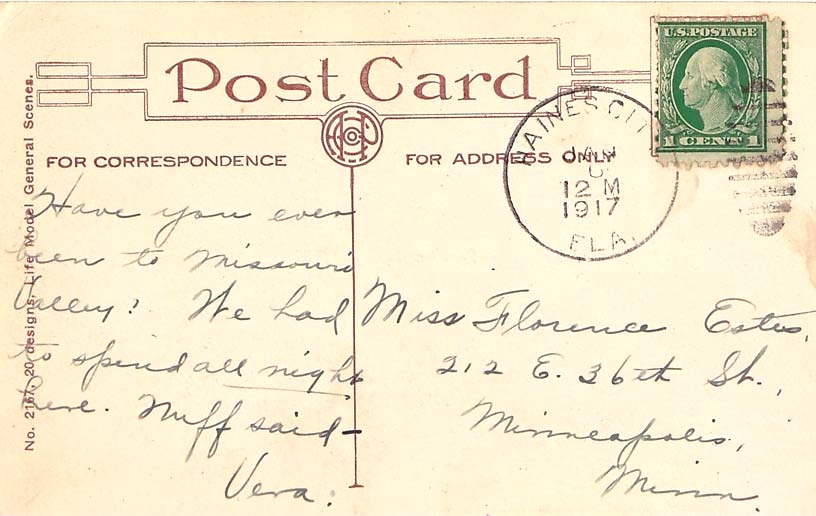 Post Card
FOR CORRESPONDENCE
FOR ADDRESS ONLY
U.S. POSTAGE
1 CENT 1
HAINES CITY
JAN
12 M
1917
FLA.
No. 2167, 20 designs, Life Model General Scenes.
Have you ever
been to Missouri
Valley? We had
to spend all night
here. Nuff said—
Vera.
Miss Florence Estes,
212 E. 36th St.,
Minneapolis,
Minn.